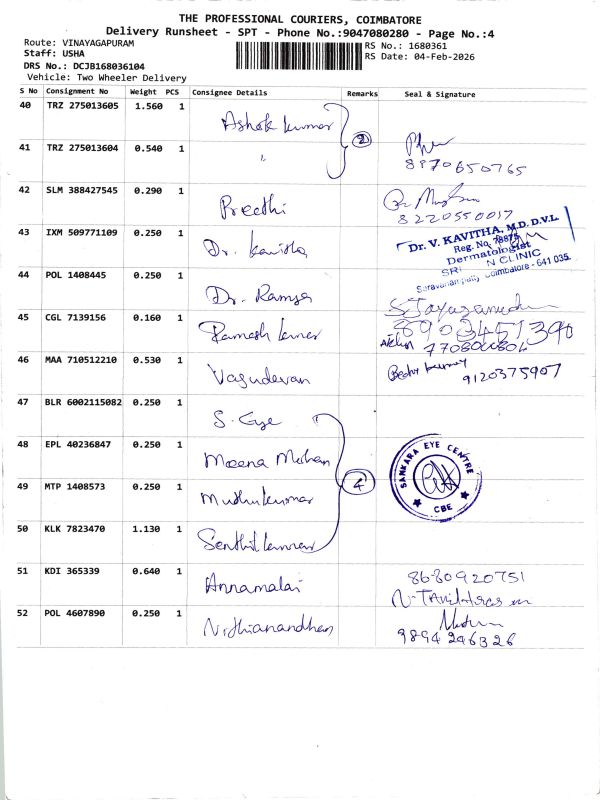 THE PROFESSIONAL COURIERS, COIMBATORE
Delivery Runsheet - SPT - Phone No.:9047080280 - Page No.:4
Route: VINAYAGAPURAM
Staff: USHA
DRS No.: DCJB168036104
Vehicle: Two Wheeler Delivery
RS No.: 1680361
RS Date: 04-Feb-2026
S No Consignment No Weight PCS Consignee Details Remarks Seal & Signature
40 TRZ 275013605 1.560 1 Ashok kumar 2
41 TRZ 275013604 0.540 1 " 8970650765
42 SLM 388427545 0.290 1 Preethi 8220550017
43 IXM 509771109 0.250 1 Dr. Kavitha
Dr. V. KAVITHA, M.D. D.V.L.
Reg. No. 78875
Dermatologist
CLINIC
Coimbatore - 641 035.
44 POL 1408445 0.250 1 Dr. Ramya
45 CGL 7139156 0.160 1 Ramesh kumar
46 MAA 710512210 0.530 1 Vasudevan 9120375907
47 BLR 6002115082 0.250 1 S. Eye
48 EPL 40236847 0.250 1 Meena Mohan
49 MTP 1408573 0.250 1 Muthukumar 4
SANKARA EYE CENTRE
CBE
50 KLK 7823470 1.130 1 Senthil kumar
51 KDI 365339 0.640 1 Annamalai 8680920751
52 POL 4607890 0.250 1 Nithianandhan
9894246326